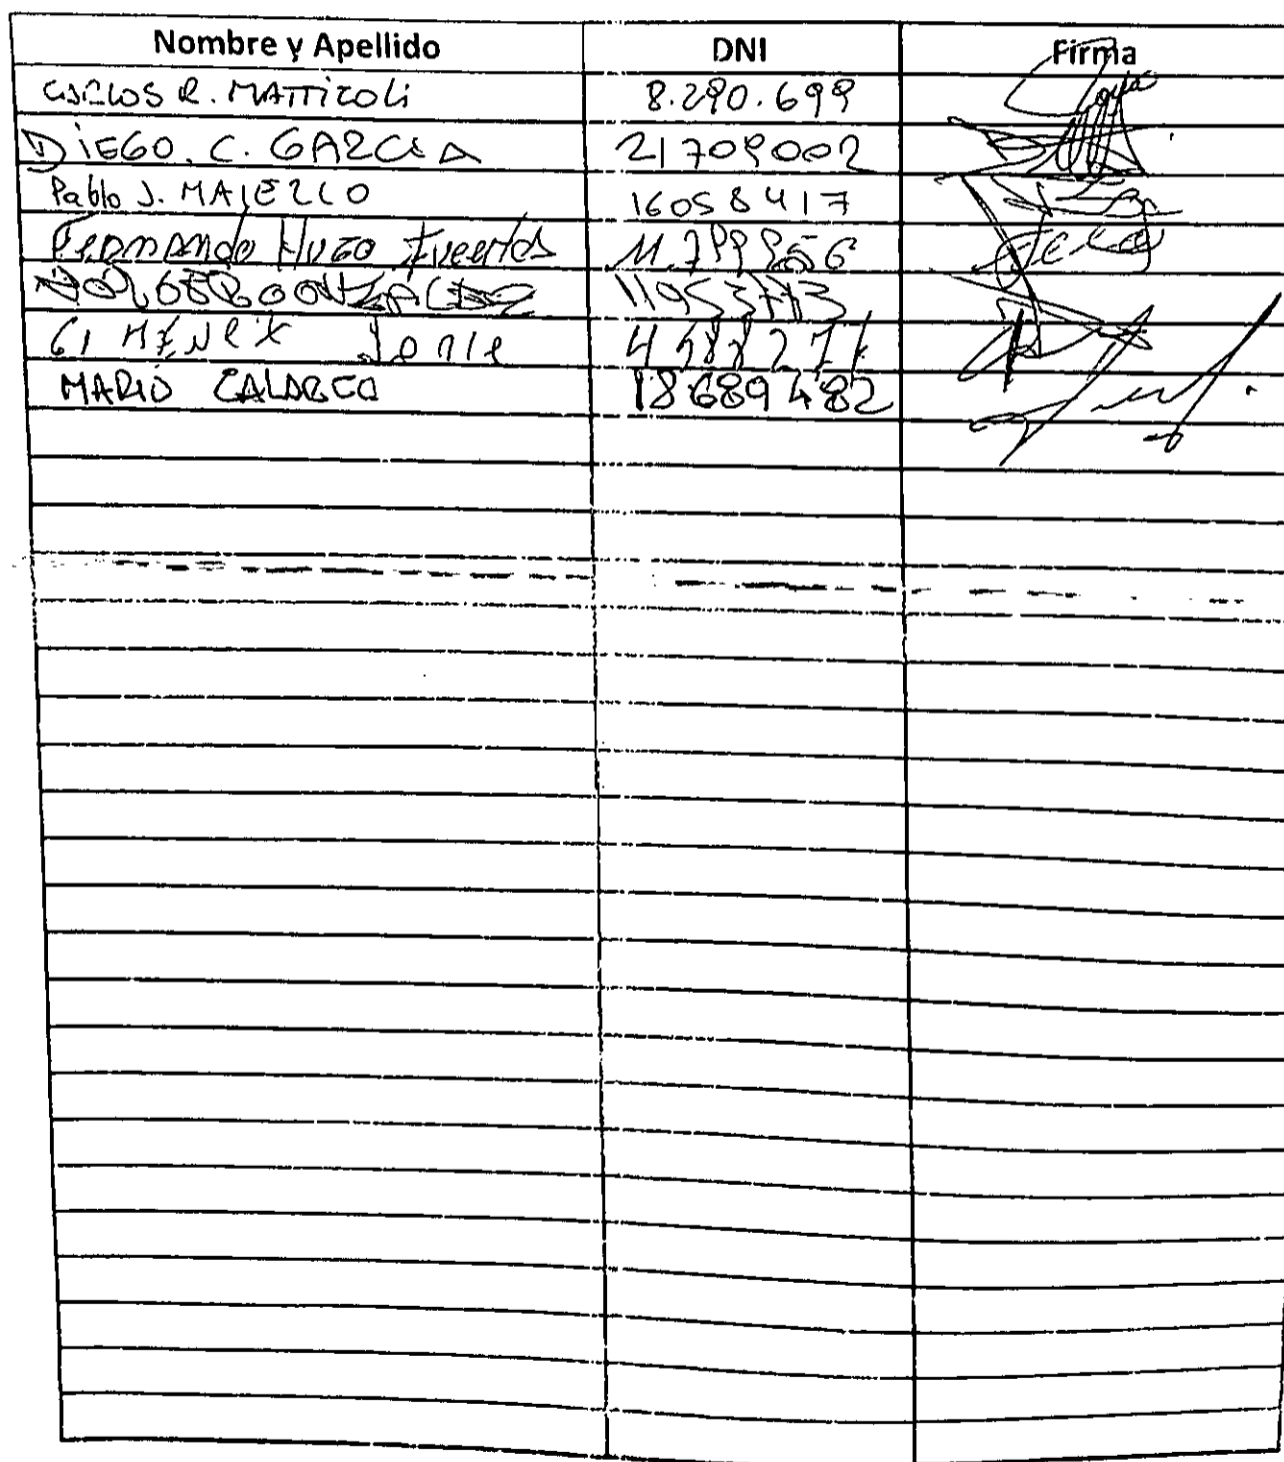 Nombre y Apellido DNI Firma
CARLOS R. MATTICOLI 8.290.699
DIEGO. C. GARCIA 21709002
Pablo J. MAIELLO 16058417
Fernando Hugo Fuertes
11953713
GIMENEX Jorge
MARIO CALABCO 18689482